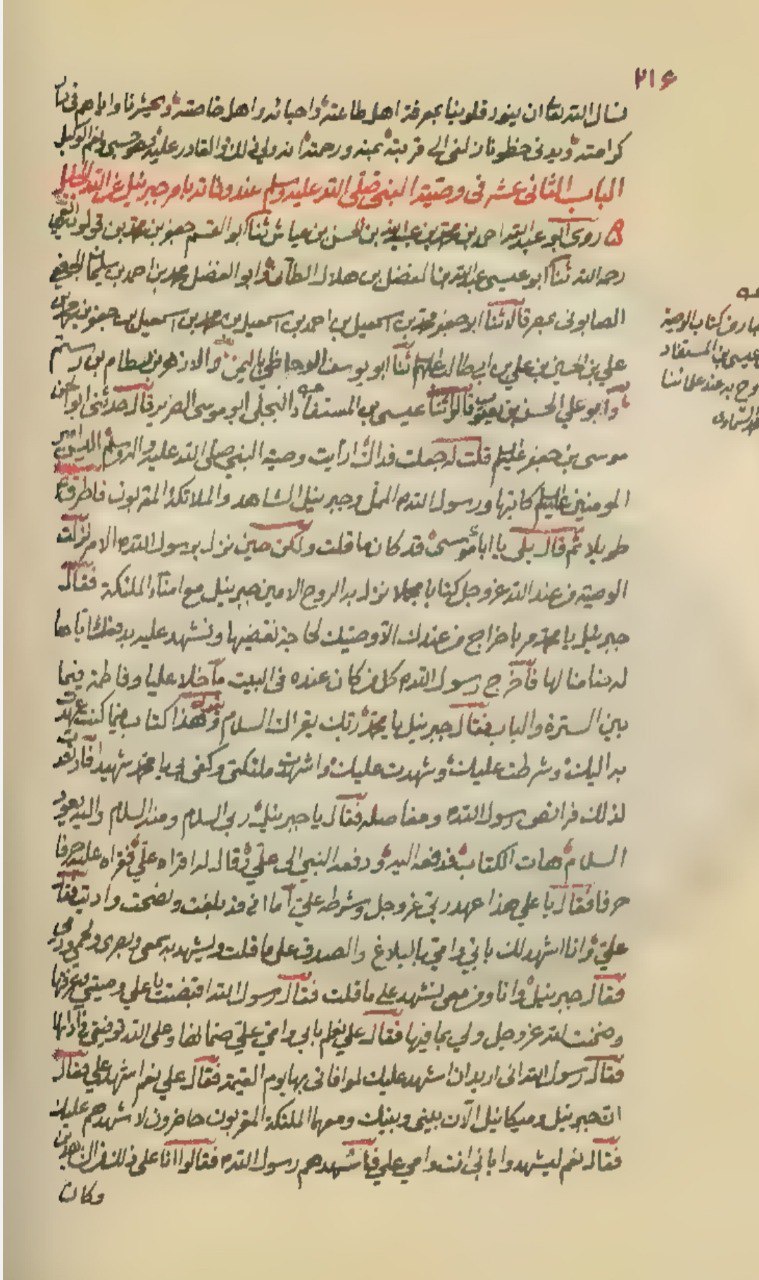 ٢١۶
نسال الله تعالى ان ينور قلوبنا بمعرفة اهل طاعته واحبائه واهل خاصته ويحشرنا واياهم في
كرامته ويدني حظوتنا في الى قربته بمنه ورحمته انه ولي ذلك والقادر عليه وهو حسبي ونعم الوكيل
الباب الثاني عشر في وصيته النبي صلى الله عليه وسلم عند وفاته بامر جبرئيل عن الله الجليل
روى ابو عبد الله احمد بن محمد بن عبيد الله بن الحسن بن عياش ثنا ابو القسم جعفر بن محمد بن قولويه القمي
رحمه الله ثنا ابو عيسى عبيد الله بن الفضل بن هلال الطائي وابو الفضل محمد بن احمد بن سليمان الجعفي
الصابوني بمصر قالا ثنا ابو جعفر محمد بن اسمعيل بن احمد بن اسمعيل بن محمد بن اسمعيل بن جعفر بن محمد بن
علي بن الحسين بن علي بن ابي طالب عليهم ثنا ابو يوسف الوحاظي باليمن والازهر بن بسطام بن رستم
وابو علي الحسن بن يعقوب قالوا ثنا عيسى بن المستفاد البجلي ابو موسى الضرير قال حدثني ابو الحسن
موسى بن جعفر عليهم قلت له جعلت فداك ارايت وصية النبي صلى الله عليه واله وسلم اليس امير
المومنين عليه السلم كاتبها ورسول الله المملي وجبرئيل الشاهد والملائكة المقربون فاطرق
طويلا ثم قال بلى يا ابا موسى قد كان ما قلت ولكن حين نزل برسول الله الامر نزلت
الوصية من عند الله عز وجل كتابا مسجلا نزل به الروح الامين جبرئيل مع امناء الملئكة فقال
جبرئيل يا محمد مر باخراج من عندك الا وصيك لحاجة نقضيها ونشهد عليه بدفعك اياها
له ضامنا لها فاخرج رسول الله كل من كان عنده في البيت ما خلا عليا وفاطمة فيما
بين السترة والباب فقال جبرئيل يا محمد ربك يقراك السلام وهذا كتاب بما كنت عهدت
به اليك وشرطت عليك وشهدت عليك واشهدت ملئكتي وكفى بي يا محمد شهيدا فارتعدت
لذلك فرائص رسول الله ومفاصله فقال يا جبرئيل ربي السلام ومنه السلام واليه يعود
السلام هات الكتاب فدفعه اليه ودفعه النبي الى علي وقال له اقراه علي فقراه عليه حرفا
حرفا فقال يا علي هذا عهد ربي عز وجل وشرطه علي اما اني قد بلغت ونصحت واديت فقال
علي وانا اشهد لك بابي وامي بالبلاغ والصدق على ما قلت ويشهد به سمعي وبصري ولحمي ودمي
فقال جبرئيل وانا ومن معي نشهد على ما قلت فقال رسول الله اقبضت يا علي وصيتي وعرفتها
وضمنت لله عز وجل ولي بما فيها فقال علي نعم بابي وامي علي ضمانها وعلى الله توفيقي في ادائها
فقال رسول الله اني اريد ان اشهد عليك لموافاتي بها يوم القيمة فقال علي نعم اشهد علي فقال
ان جبرئيل وميكائيل الآن بيني وبينك ومعهما الملئكة المقربون حاضرون لاشهدهم عليك
فقال نعم ليشهدوا بابي انت وامي علي فاشهدهم رسول الله فقالوا انا على ذلك من الشاهدين
وكان
من كتاب الوصية
عيسى بن المستفاد
عند علمائنا